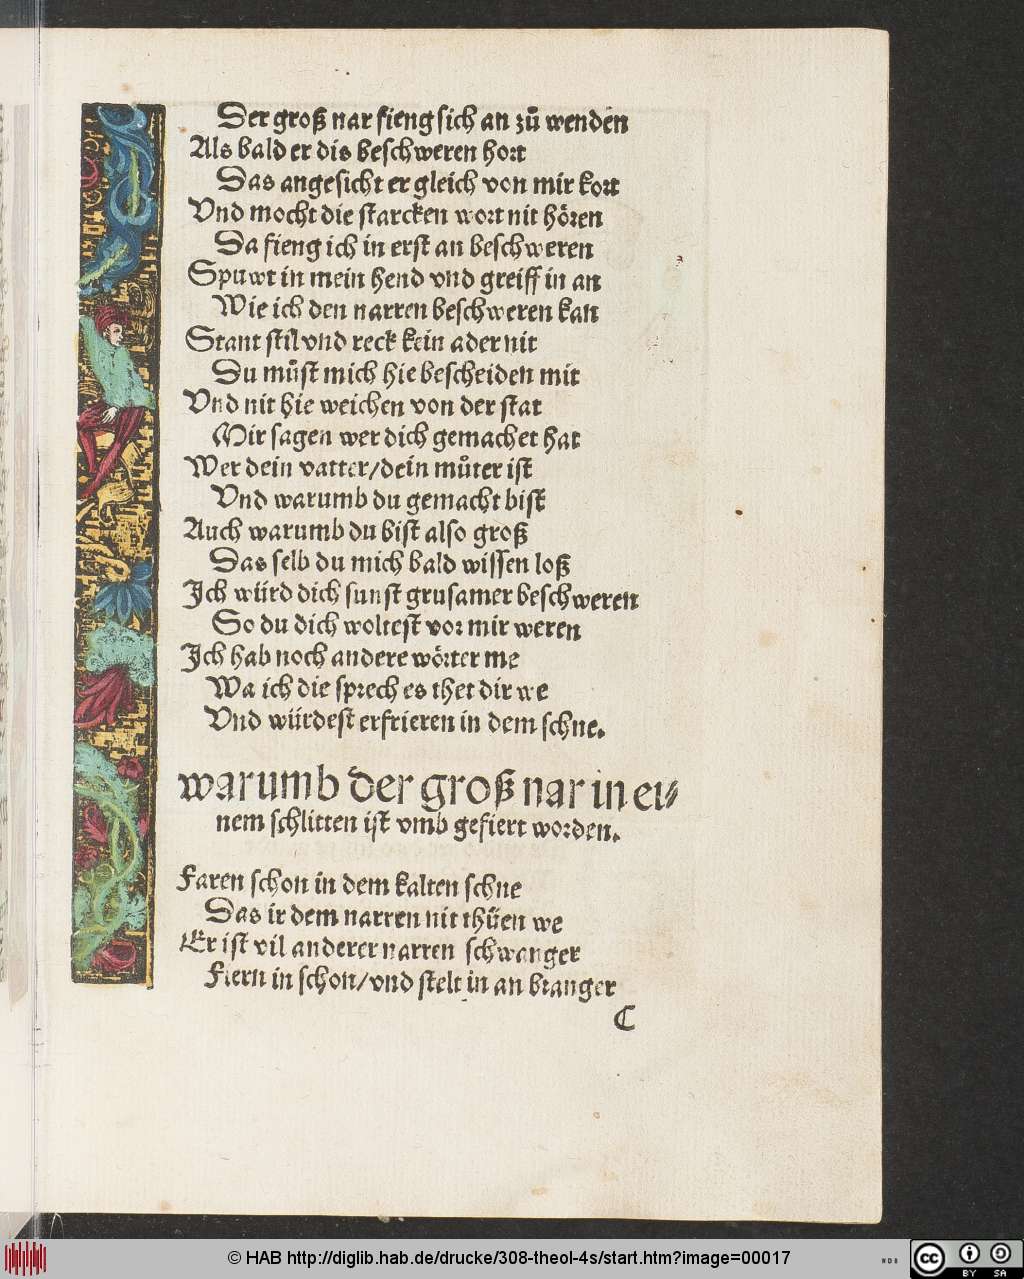 Der groß nar fieng sich an zů wenden
Als bald er dis beschweren hort
Das angesicht er gleich von mir kort
Vnd mocht die starcken wort nit hören
Da fieng ich in erst an beschweren
Spuwt in mein hend vnd greiff in an
Wie ich den narren beschweren kan
Stant stil vnd reck kein ader nit
Du můst mich hie bescheiden mit
Vnd nit hie weichen von der stat
Mir sagen wer dich gemachet hat
Wer dein vatter/dein můter ist
Vnd warumb du gemacht bist
Auch warumb du bist also groß
Das selb du mich bald wissen loß
Ich würd dich sunst grusamer beschweren
So du dich woltest vor mir weren
Ich hab noch andere wörter me
Wa ich die sprech es thet dir we
Vnd würdest erfrieren in dem schne.
warumb der groß nar in ei⸗
nem schlitten ist vmb gefiert worden.
Faren schon in dem kalten schne
Das ir dem narren nit thüen we
Er ist vil anderer narren schwanger
Fiern in schon/vnd stelt in an branger
C
© HAB http://diglib.hab.de/drucke/308-theol-4s/start.htm?image=00017
WDB
cc
BY SA